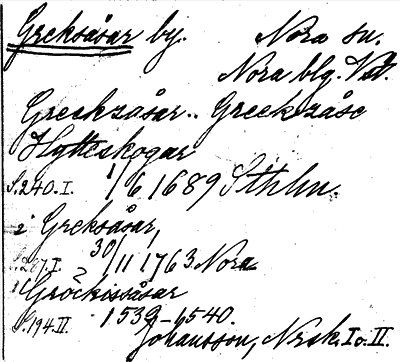 Greksåsar by. Nora sn.
Nora blg. Vstm.
Greekzåsar.. Greekzåse
Hytteskogar
S.240.I. 1/6 1689 Sthlm.
i Greksåsar,
S.207.I. 30/11 1763 Nora
i Gröckissåsar
S.194.II. 1539-1540.
Johansson, Nrsk. I o. II.